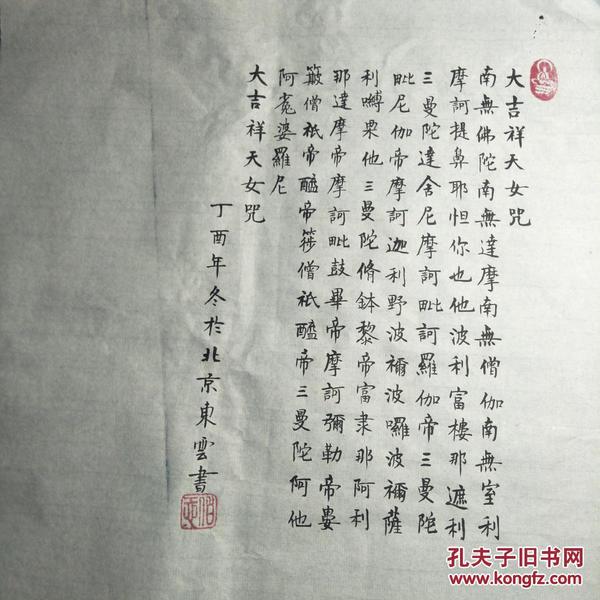 大吉祥天女咒
南無佛陀南無達摩南無僧伽南無室利
摩訶提鼻耶怛你也他波利富樓那遮利
三曼陀達舍尼摩訶毗訶羅伽帝三曼陀
毗尼伽帝摩訶迦利野波禰波囉波禰薩
利嚩栗他三曼陀脩鉢黎帝富隶那阿利
那達摩帝摩訶毗鼓畢帝摩訶彌勒帝婁
簸僧祇帝醯帝簁僧祇醯帝三曼陀阿他
阿㝹婆羅尼
大吉祥天女咒
丁酉年冬於北京東雲書
孔夫子旧书网
www.kongfz.com